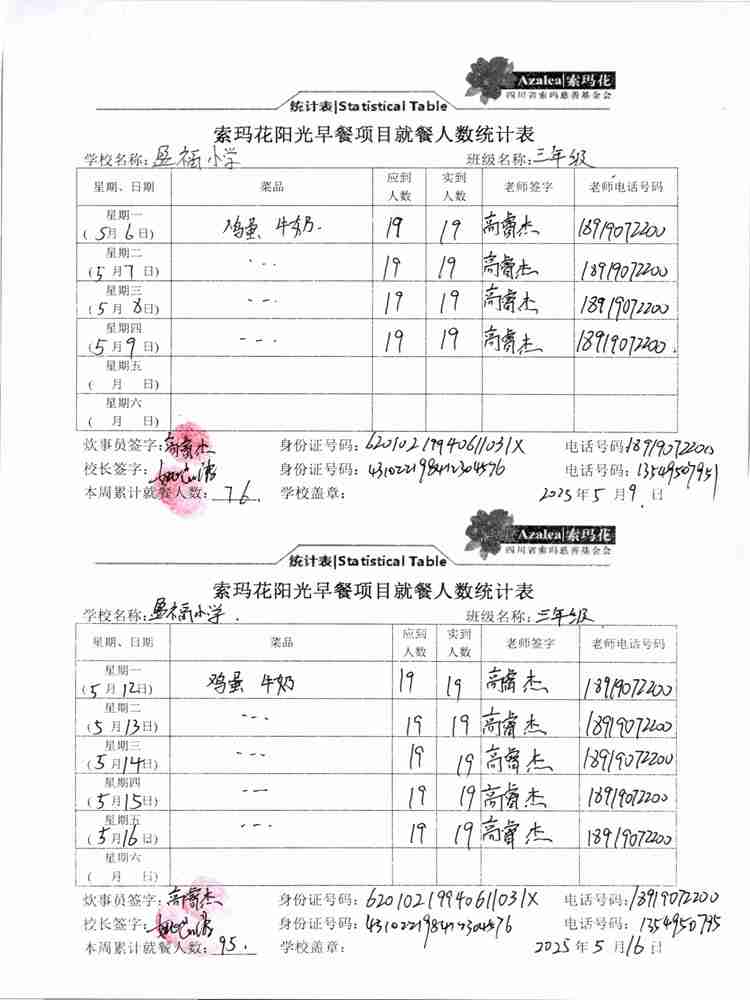 Azalea 索玛花
四川省索玛慈善基金会
统计表|Statistical Table
索玛花阳光早餐项目就餐人数统计表
学校名称: 小学 班级名称: 三年级
星期、日期 菜品 应到人数 实到人数 老师签字 老师电话号码
星期一 (5月6日) 鸡蛋 牛奶. 19 19 高睿杰 18919072200
星期二 (5月7日) 19 19 高睿杰 18919072200
星期三 (5月8日) 19 19 高睿杰 18919072200
星期四 (5月9日) 19 19 高睿杰 18919072200.
星期五 ( 月 日)
星期六 ( 月 日)
炊事员签字: 高睿杰 身份证号码: 62010219940611031X 电话号码: 18919072200
校长签字: 身份证号码: 电话号码: 13549507951
本周累计就餐人数: 76. 学校盖章: 2025年5月9日
Azalea 索玛花
四川省索玛慈善基金会
统计表|Statistical Table
索玛花阳光早餐项目就餐人数统计表
学校名称: 小学. 班级名称: 三年级
星期、日期 菜品 应到人数 实到人数 老师签字 老师电话号码
星期一 (5月12日) 鸡蛋 牛奶 19 19 高睿杰 18919072200
星期二 (5月13日) 19 19 高睿杰 18919072200
星期三 (5月14日) 19 19 高睿杰 18919072200
星期四 (5月15日) 19 19 高睿杰 18919072200
星期五 (5月16日) 19 19 高睿杰 18919072200
星期六 ( 月 日)
炊事员签字: 高睿杰 身份证号码: 62010219940611031X 电话号码: 18919072200
校长签字: 身份证号码: 电话号码:
本周累计就餐人数: 95. 学校盖章: 2025年5月16日